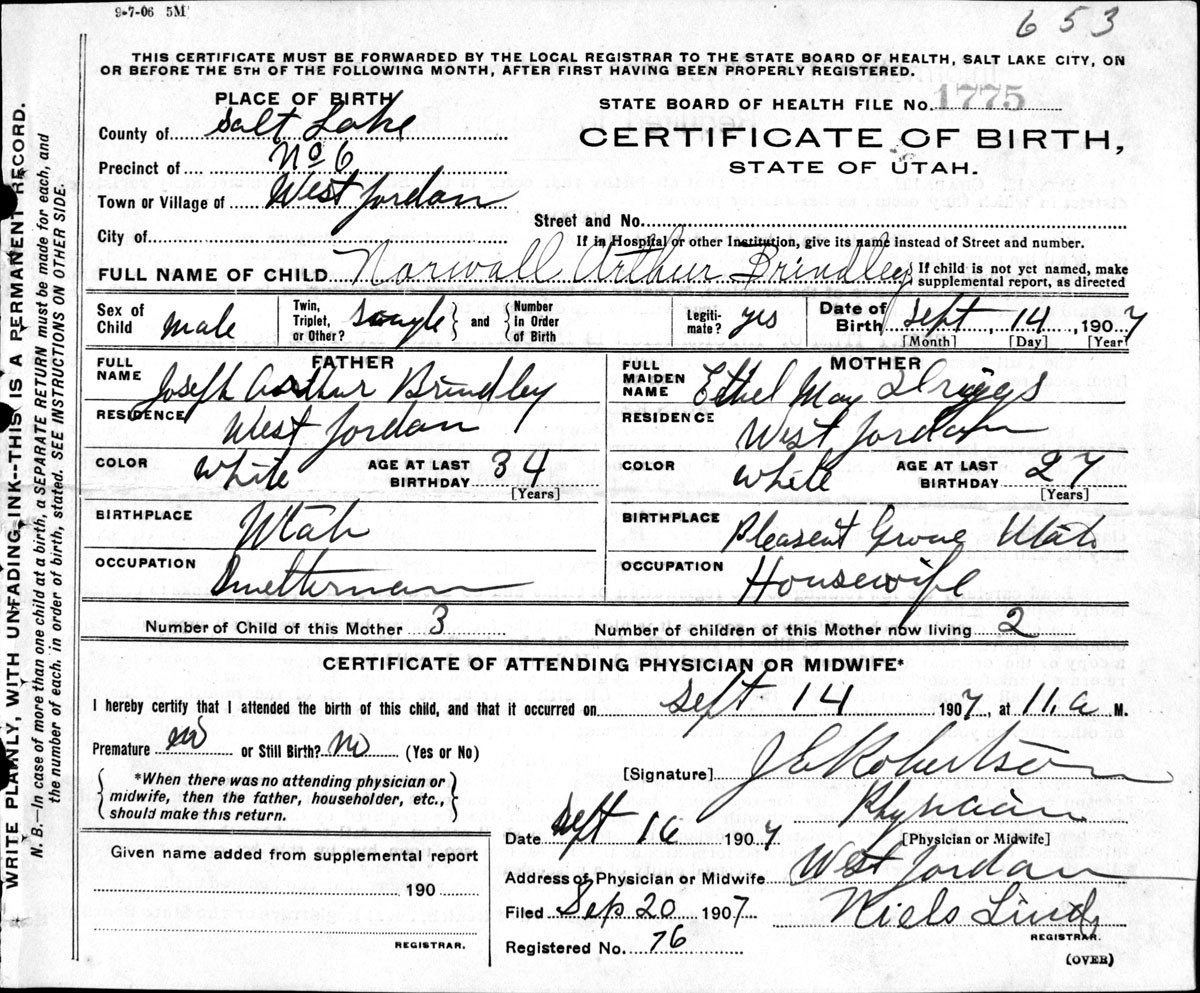 9-7-06 5M
653
THIS CERTIFICATE MUST BE FORWARDED BY THE LOCAL REGISTRAR TO THE STATE BOARD OF HEALTH, SALT LAKE CITY, ON
OR BEFORE THE 5TH OF THE FOLLOWING MONTH, AFTER FIRST HAVING BEEN PROPERLY REGISTERED.
PLACE OF BIRTH
STATE BOARD OF HEALTH FILE No. 1775
County of Salt Lake
CERTIFICATE OF BIRTH,
STATE OF UTAH.
Precinct of No 6
Town or Village of West Jordan
Street and No.
City of
If in Hospital or other Institution, give its name instead of Street and number.
FULL NAME OF CHILD Norwall Arthur Brindley { If child is not yet named, make supplemental report, as directed
Sex of Child male Twin, Triplet, or Other? single } and { Number in Order of Birth Legiti-mate? yes Date of Birth Sept, 14, 1907
[Month] [Day] [Year]
FATHER
FULL NAME Joseph Arthur Brindley
RESIDENCE West Jordan
COLOR white AGE AT LAST BIRTHDAY 34
[Years]
BIRTHPLACE Utah
OCCUPATION Smelterman
MOTHER
FULL MAIDEN NAME Ethel May Driggs
RESIDENCE West Jordan
COLOR white AGE AT LAST BIRTHDAY 27
[Years]
BIRTHPLACE Pleasent Grove Utah
OCCUPATION Housewife
Number of Child of this Mother 3 Number of children of this Mother now living 2
CERTIFICATE OF ATTENDING PHYSICIAN OR MIDWIFE*
I hereby certify that I attended the birth of this child, and that it occurred on Sept 14 1907, at 11.a M.
Premature no or Still Birth? no (Yes or No)
[Signature] J C Robertson
{ *When there was no attending physician or
midwife, then the father, householder, etc.,
should make this return. }
Physician
Date Sept 16 1907 [Physician or Midwife]
Given name added from supplemental report
190
REGISTRAR.
Address of Physician or Midwife West Jordan
Filed Sep 20 1907 Niels Lind
REGISTRAR.
Registered No. 76
(OVER)
WRITE PLAINLY, WITH UNFADING INK--THIS IS A PERMANENT RECORD.
N. B.—In case of more than one child at a birth, a SEPARATE RETURN must be made for each, and
the number of each, in order of birth, stated. SEE INSTRUCTIONS ON OTHER SIDE.